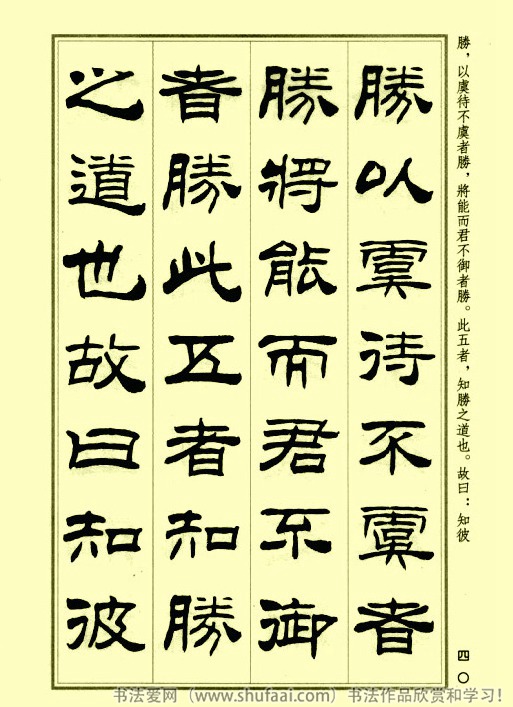 勝，以虞待不虞者勝，將能而君不御者勝。此五者，知勝之道也。故曰：知彼
四〇
勝以虞待不虞者
勝將能而君不御
者勝此五者知勝
之道也故曰知彼
书法爱网（www.shufaai.com）书法作品欣赏和学习！